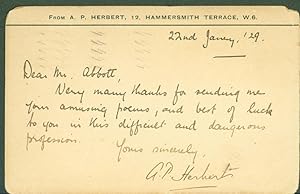 FROM A. P. HERBERT, 12, HAMMERSMITH TERRACE, W.6.
22nd Jany, '29.
Dear Mr. Abbott,
Very many thanks for sending me
your amusing poems, and best of luck
to you in this difficult and dangerous
profession.
Yours sincerely,
A.P. Herbert